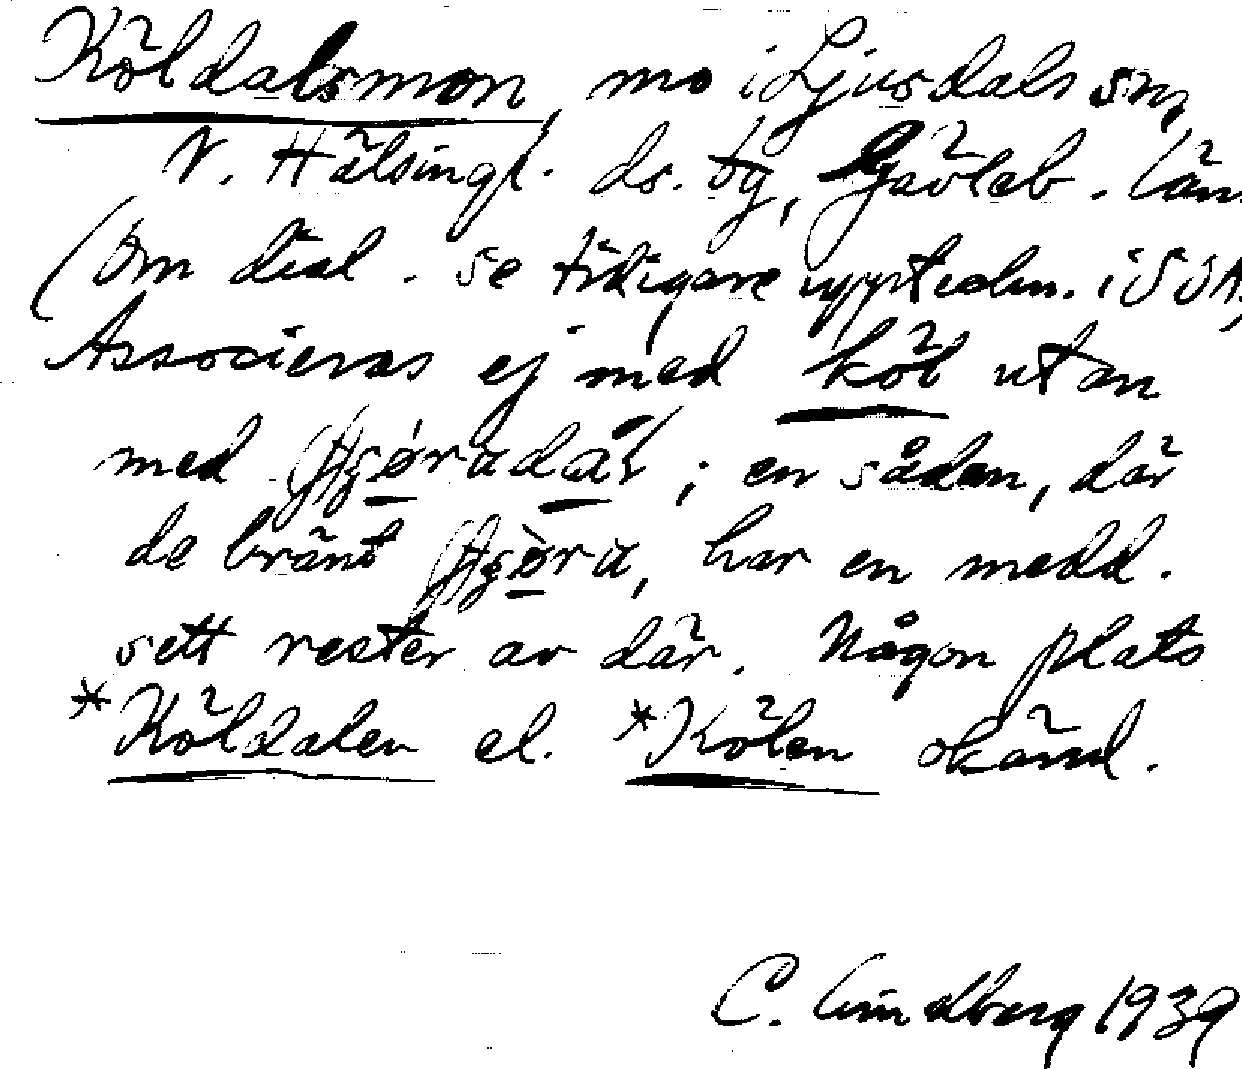 Köldalsmon, mo i Ljusdals sn,
N. Hälsingl. ds. tg, Gävleb. län.
(Om dial. se tidigare uppteckn. i SOA,
Associeras ej med köl utan
med ; en sådan, där
de bränt, har en medd.
sett rester av där. Någon plats
*Köldalen el. *Kölen okänd.
C. Lindberg 1939